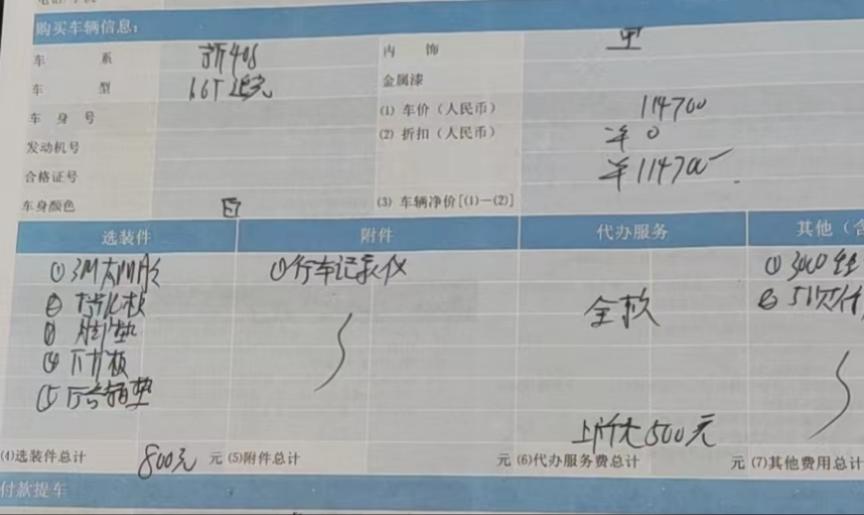 购买车辆信息:
车系 新408 内饰 黑
车型 1.6T 金属漆
车身号 (1) 车价（人民币） 114700
发动机号 (2) 折扣（人民币） ¥ 0
合格证号 ¥114700
车身颜色 白 (3) 车辆净价[(1)-(2)]
选装件 附件 代办服务 其他（含
① 3M太阳膜 ① 行车记录仪 ① 3000
② 全款 ②
③ 脚垫
④ 下护板
⑤ 后备箱垫
上牌 500元
(4)选装件总计 800元 元 (5)附件总计 元 (6)代办服务费总计 元 (7)其他费用总计
付款提车